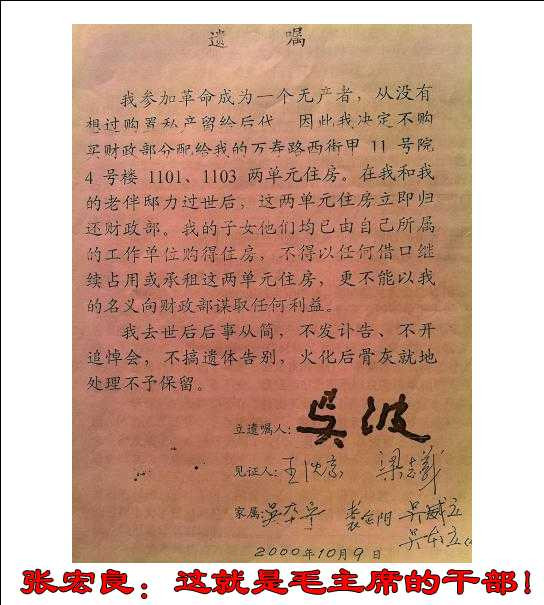 遗 嘱
我参加革命成为一个无产者，从没有
想过购置私产留给后代，因此我决定不购
买财政部分配给我的万寿路西街甲 11 号院
4 号楼 1101、1103 两单元住房。在我和我
的老伴邸力过世后，这两单元住房立即归
还财政部。我的子女他们均已由自己所属
的工作单位购得住房，不得以任何借口继
续占用或承租这两单元住房，更不能以我
的名义向财政部谋取任何利益。
我去世后后事从简，不发讣告、不开
追悼会，不搞遗体告别，火化后骨灰就地
处理不予保留。
立遗嘱人：吴波
见证人：王 梁志义
家属：吴本宁 吴威立
吴本立
2000年10月9日
张宏良：这就是毛主席的干部！